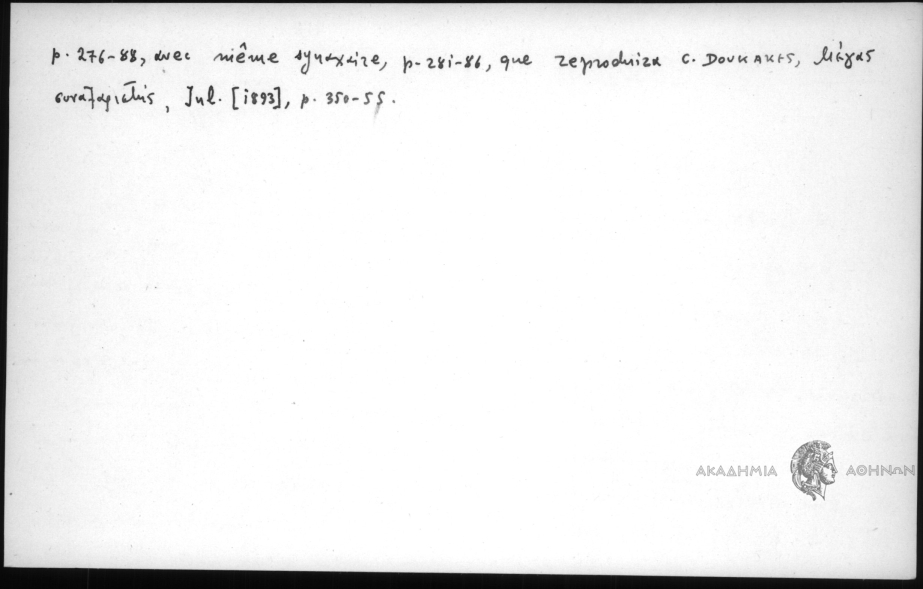 p. 276-88, avec même synaxaire, p. 281-86, que reproduira C. DOUKAKES, Μέγας
συναξαριστής, Jul. [1893], p. 350-55.
ΑΚΑΔΗΜΙΑ ΑΘΗΝΩΝ